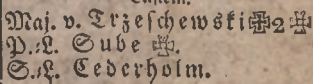 Maj. v. Trzeschewski ✠2 ✠
P.=L. Sube ✠.
S.=L. Cederholm.